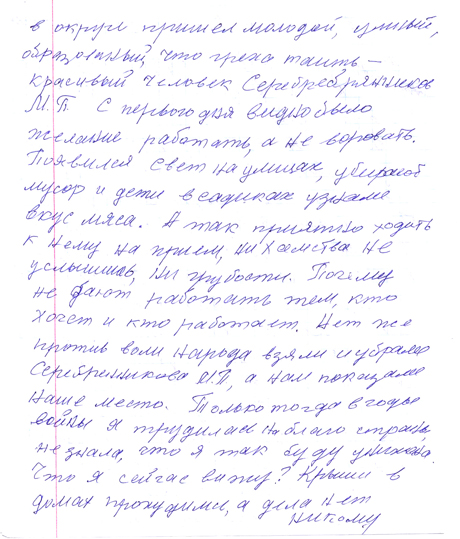 в округ пришел молодой, умный,
образованный, что греха таить –
красивый человек Серебрянников
М.П. С первого дня видно было
желание работать, а не воровать.
Появился свет на улицах, убирают
мусор и дети в садиках узнали
вкус мяса. А так приятно ходить
к нему на прием, ни хамства не
услышишь, ни грубости. Почему
не дают работать тем, кто
хочет и кто работает. Нет же
против воли народа взяли и убрали
Серебренникова М.П, а нам показали
наше место. Только тогда в годы
войны я трудилась на благо страны,
не знала, что я так буду унижена.
Что я сейчас вижу? Крыши в
домах прохудились, а дела нет
никому